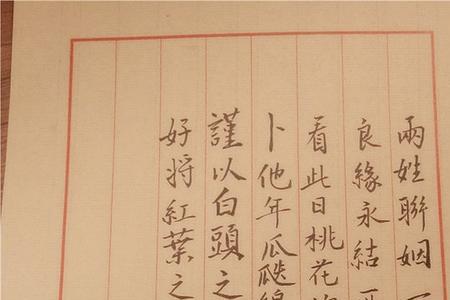 兩姓聯姻一
良緣永結
看此日桃花
卜他年瓜瓞綿
謹以白頭之
好將紅葉之